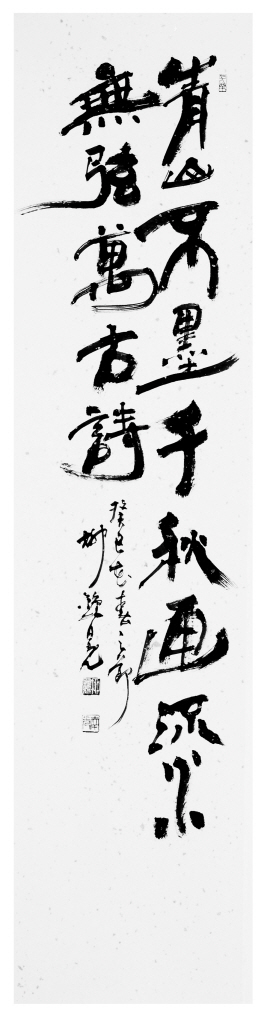 青山不墨千秋画流水
無弦萬古詩
癸巳花春之節
柳